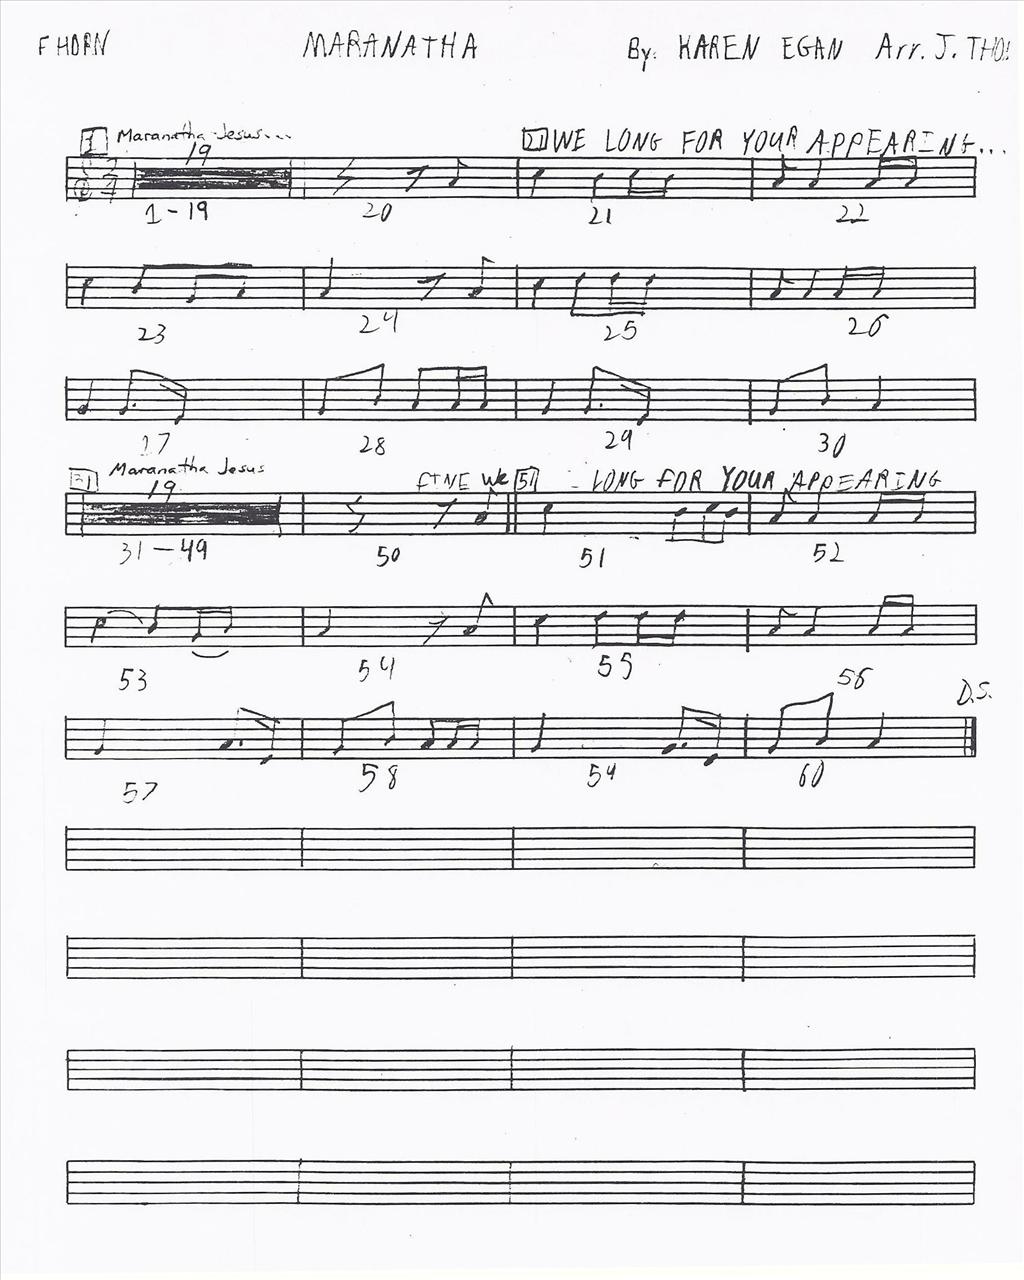 F HORN MARANATHA By: KAREN EGAN Arr. J. THO
1 Maranatha Jesus... 21 WE LONG FOR YOUR APPEARING...
19
1-19 20 21 22
23 24 25 26
27 28 29 30
31 Maranatha Jesus FINE We 51 - LONG FOR YOUR APPEARING
19
31-49 50 51 52
53 54 55 56
D.S.
57 58 59 60